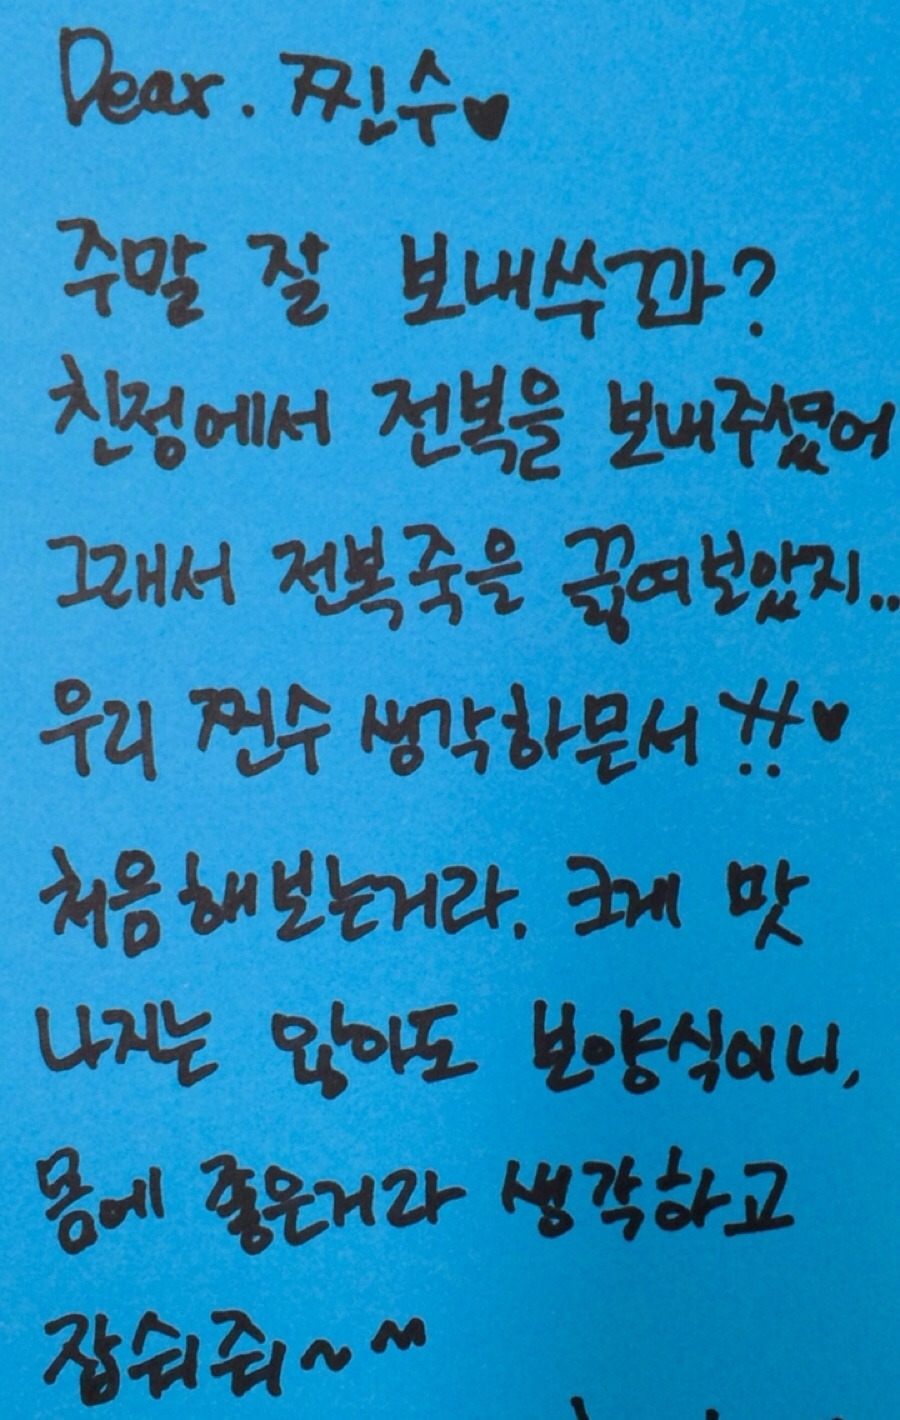 Dear. 찐수♥
주말 잘 보내쑤까?
친정에서 전복을 보내주셨어
그래서 전복죽을 끓여보았지..
우리 찐수 생각하믄서 !!♥
처음 해보는거라. 크게 맛
나지는 않아도 보양식이니,
몸에 좋은거라 생각하고
잡숴줘~~